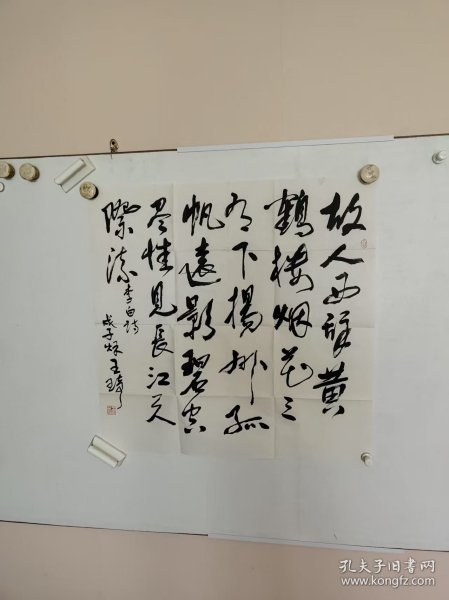 故人西辞黄
鶴楼烟花三
月下揚州孤
帆遠影碧空
尽惟見長江天
際流 李白诗
戊子秋 王
孔夫子旧书网
www.kongfz.com